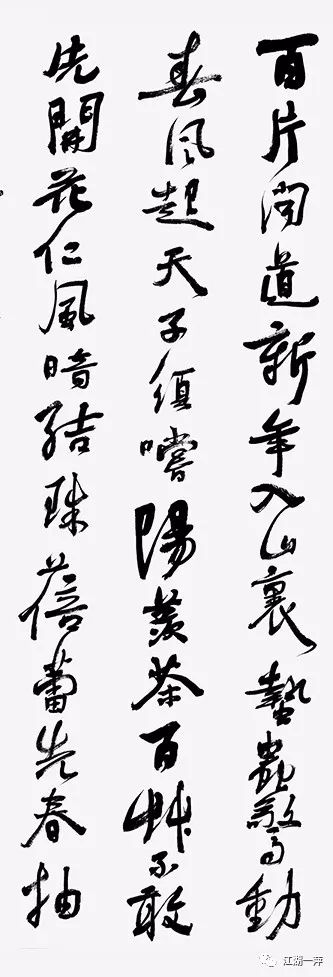 百片聞道新年入山裏蟄蟲驚動
春風起天子須嚐陽羨茶百艸不敢
先開花仁風暗結珠蓓蕾先春抽
江湖一萍